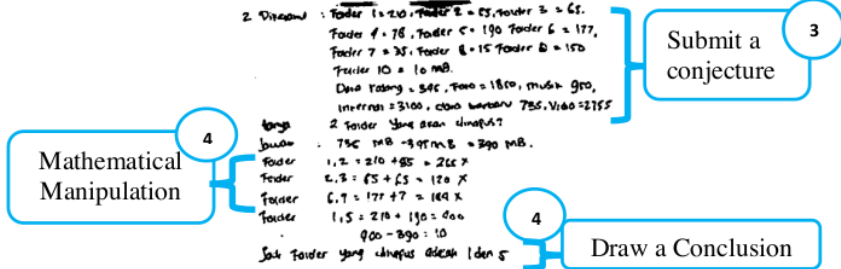 2 Diketahui : Folder 1 = 210, Folder 2 = 55, Folder 3 = 65.
Folder 4 = 78, Folder 5 = 190 Folder 6 = 177,
Folder 7 = 35, Folder 8 = 15 Folder 9 = 150
Folder 10 = 10 MB.
Data = 345, Foto = 1850, musik 950,
Internal = 3100, data barbaru 735, Video = 2755
tanya 2 Folder yang akan dihapus?
Jawab : 735 MB - 345 MB = 390 MB.
Folder 1,2 = 210 + 55 = 265 X
Folder 2,3 = 55 + 65 = 120 X
Folder 6,7 = 177 + 7 = 184 X
Folder 1,5 = 210 + 190 = 400
400 - 390 = 10
Jadi Folder yang dihapus adalah 1 dan 5
Submit a
conjecture
3
Mathematical
Manipulation
4
Draw a Conclusion
4